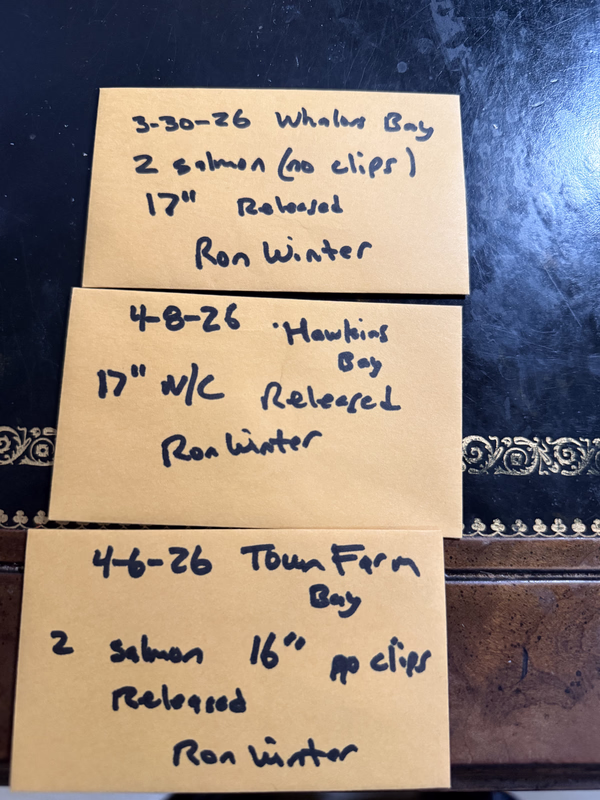 3-30-26 Whalons Bay
2 salmon (no clips)
17" Released
Ron Winter
4-8-26 Hawkins
Bay
17" N/C Released
Ron Winter
4-6-26 Town Farm
Bay
2 salmon 16" no clips
Released
Ron Winter